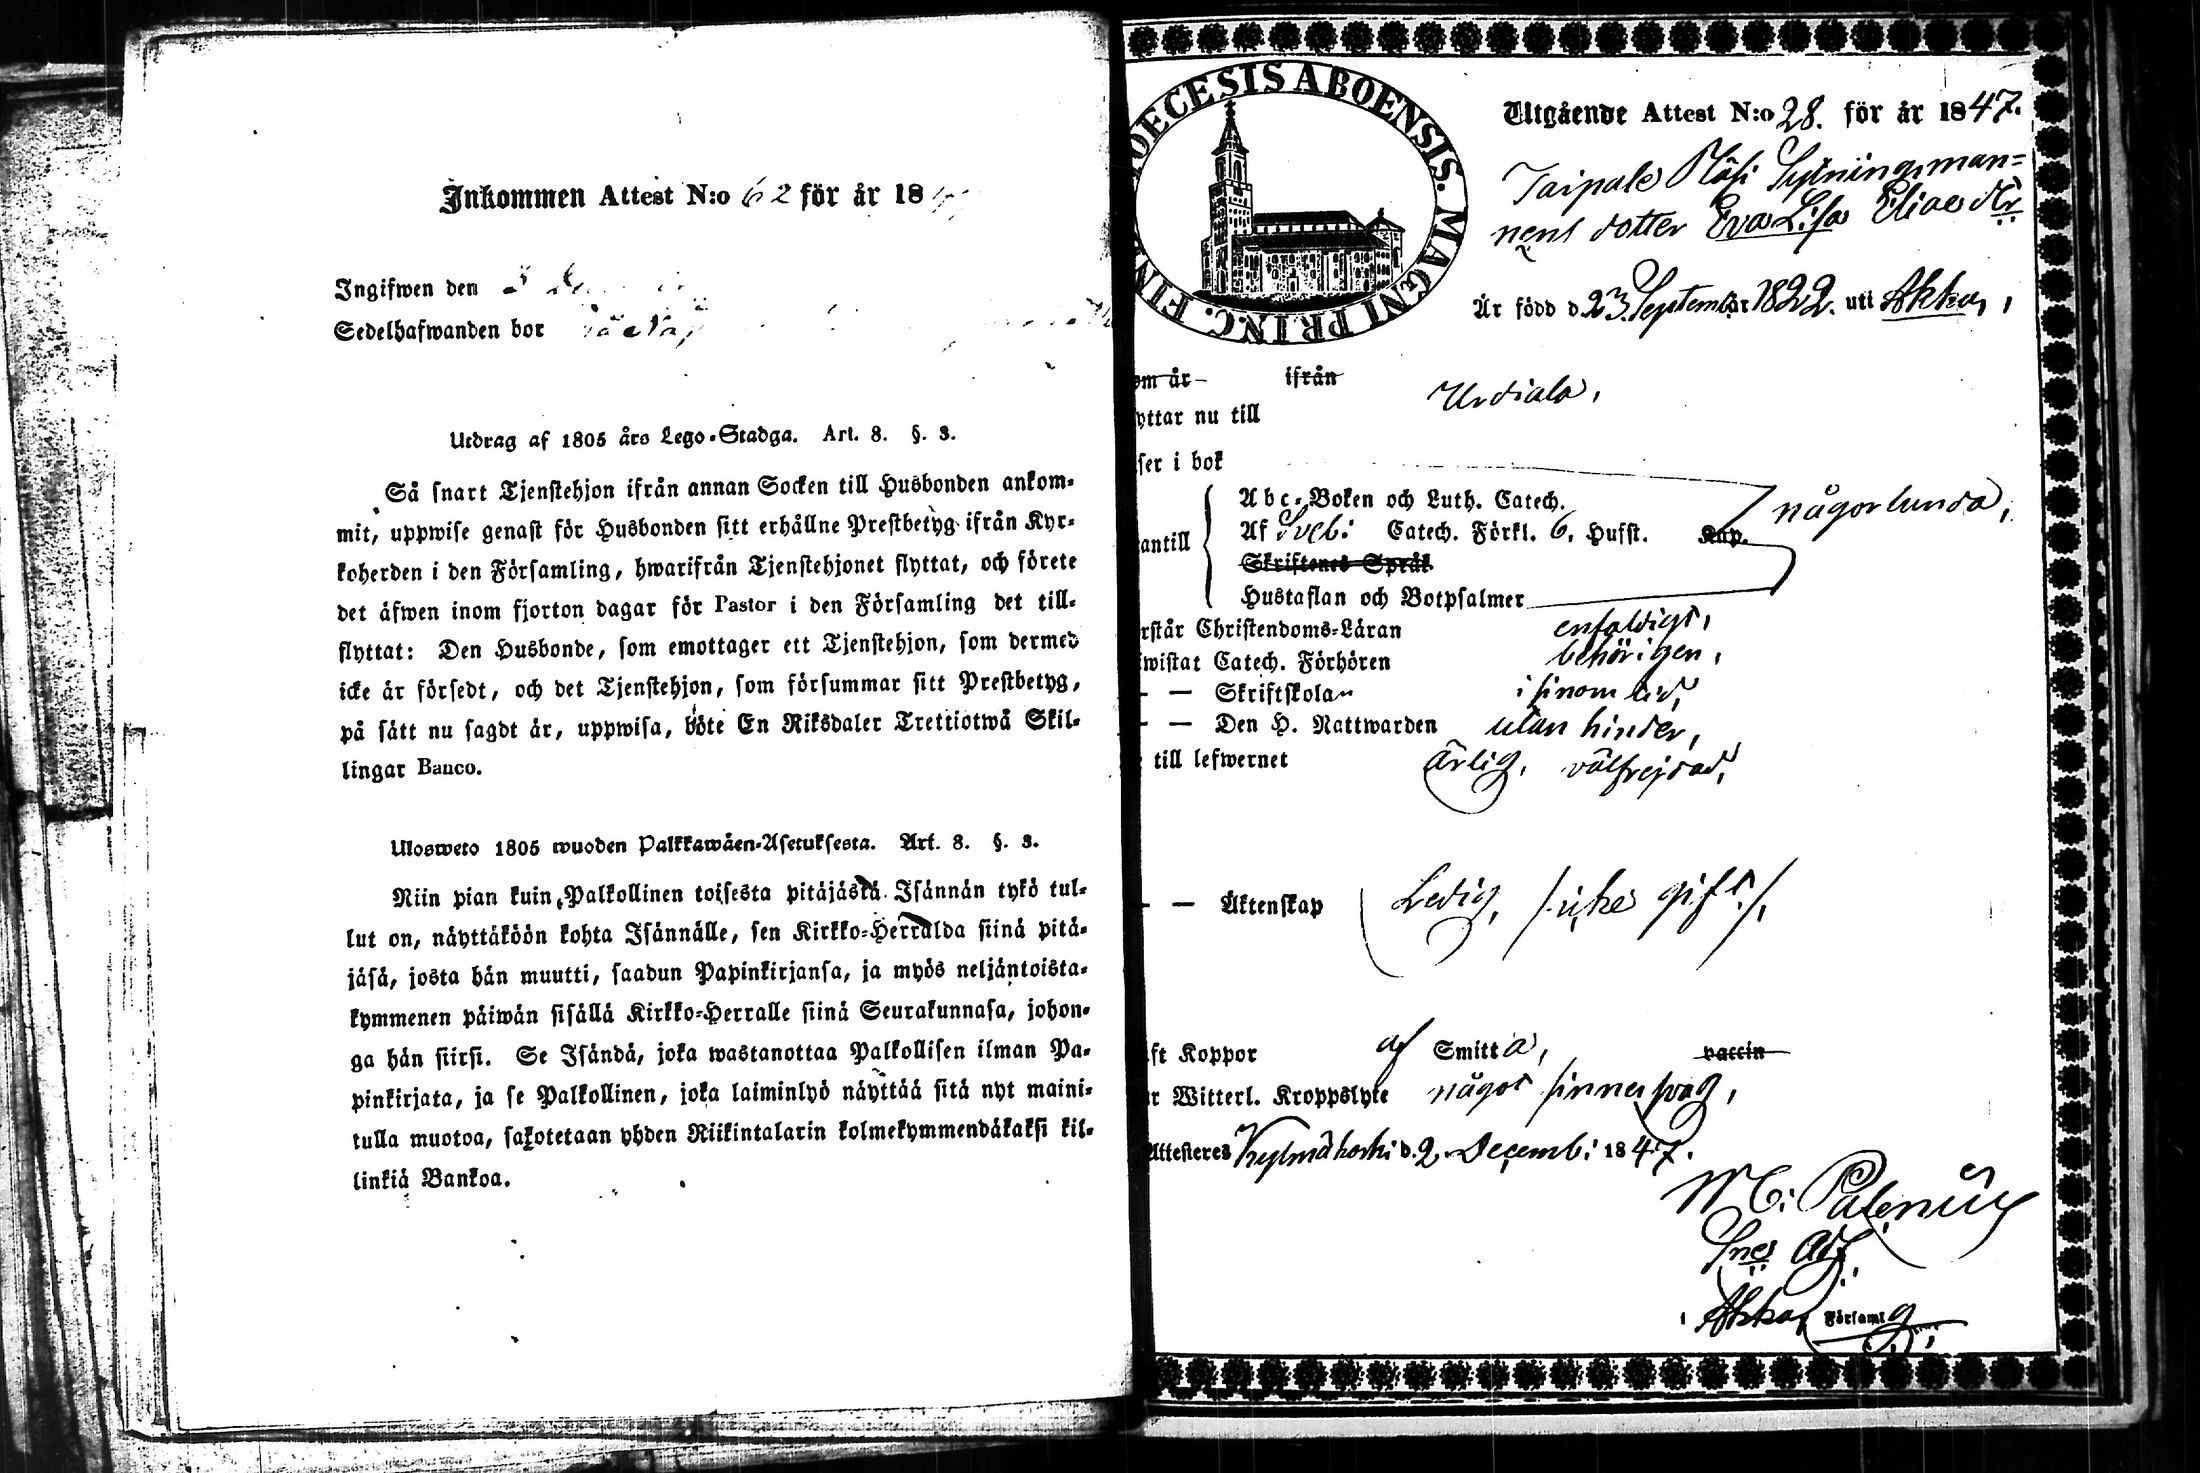 Inkommen Attest N:o 62 för år 18
Ingifwen den
Sedelhafwanden bor
Utdrag af 1805 års Lego-Stadga. Art. 8. §. 3.
Så snart Tjenstehjon ifrån annan Socken till Husbonden ankom-
mit, uppwise genast för Husbonden sitt erhållne Prestbetyg ifrån Kyr-
koherden i den Församling, hwarifrån Tjenstehjonet flyttat, och förete
det äfwen inom fjorton dagar för Pastor i den Församling det till-
flyttat: Den Husbonde, som emottager ett Tjenstehjon, som dermed
icke är försedt, och det Tjenstehjon, som försummar sitt Prestbetyg,
på sätt nu sagdt är, uppwisa, böte En Riksdaler Trettiotwå Skil-
lingar Banco.
Ulosweto 1805 wuoden Palkkawäen-Asetuksesta. Art. 8. §. 3.
Niin pian kuin Palkollinen toisesta pitäjästä Isännän tykö tul-
lut on, näyttäköön kohta Isännälle, sen Kirkko-Herralda siinä pitä-
jäsä, josta hän muutti, saadun Papinkirjansa, ja myös neljäntoista-
kymmenen päiwän sisällä Kirkko-Herralle siinä Seurakunnasa, johon-
ga hän siirsi. Se Isändä, joka wastanottaa Palkollisen ilman Pa-
pinkirjata, ja se Palkollinen, joka laiminlyö näyttää sitä nyt maini-
tulla muotoa, sakotetaan yhden Riikintalarin kolmekymmendäkaksi kil-
linkiä Bankoa.
DIOECESIS ABOENSIS. MAGNI PRINC. FIN
Utgående Attest N:o 28. för år 1847.
Taipale Mäki Sytningsman=
nens dotter Eva Lisa Elias dr
Är född d. 23. September 1822. uti Akka,
om år ifrån
yttar nu till Urdiala,
ser i bok
antill
Abc-Boken och Luth. Catech. någorlunda,
Af Sveb: Catech. Förkl. 6. Hufst. Kap.
Skriftenes Språk
Hustaflan och Botpsalmer
rstår Christendoms-Läran enfaldigt,
wistat Catech. Förhören behörigen,
— — Skriftskolan i sinom tid,
— — Den H. Nattwarden utan hinder,
till lefwernet ärlig, välfrejdad,
— — Äktenskap Ledig, /: icke gift :/,
ft Koppor af Smitta, vaccin
r Witterl. Kroppslyte något sinnessvag,
Attesteres Kylmäkoski d. 2. Decemb: 1847.
M: Palenius
Snes Adj:
i Akka, Församlg: